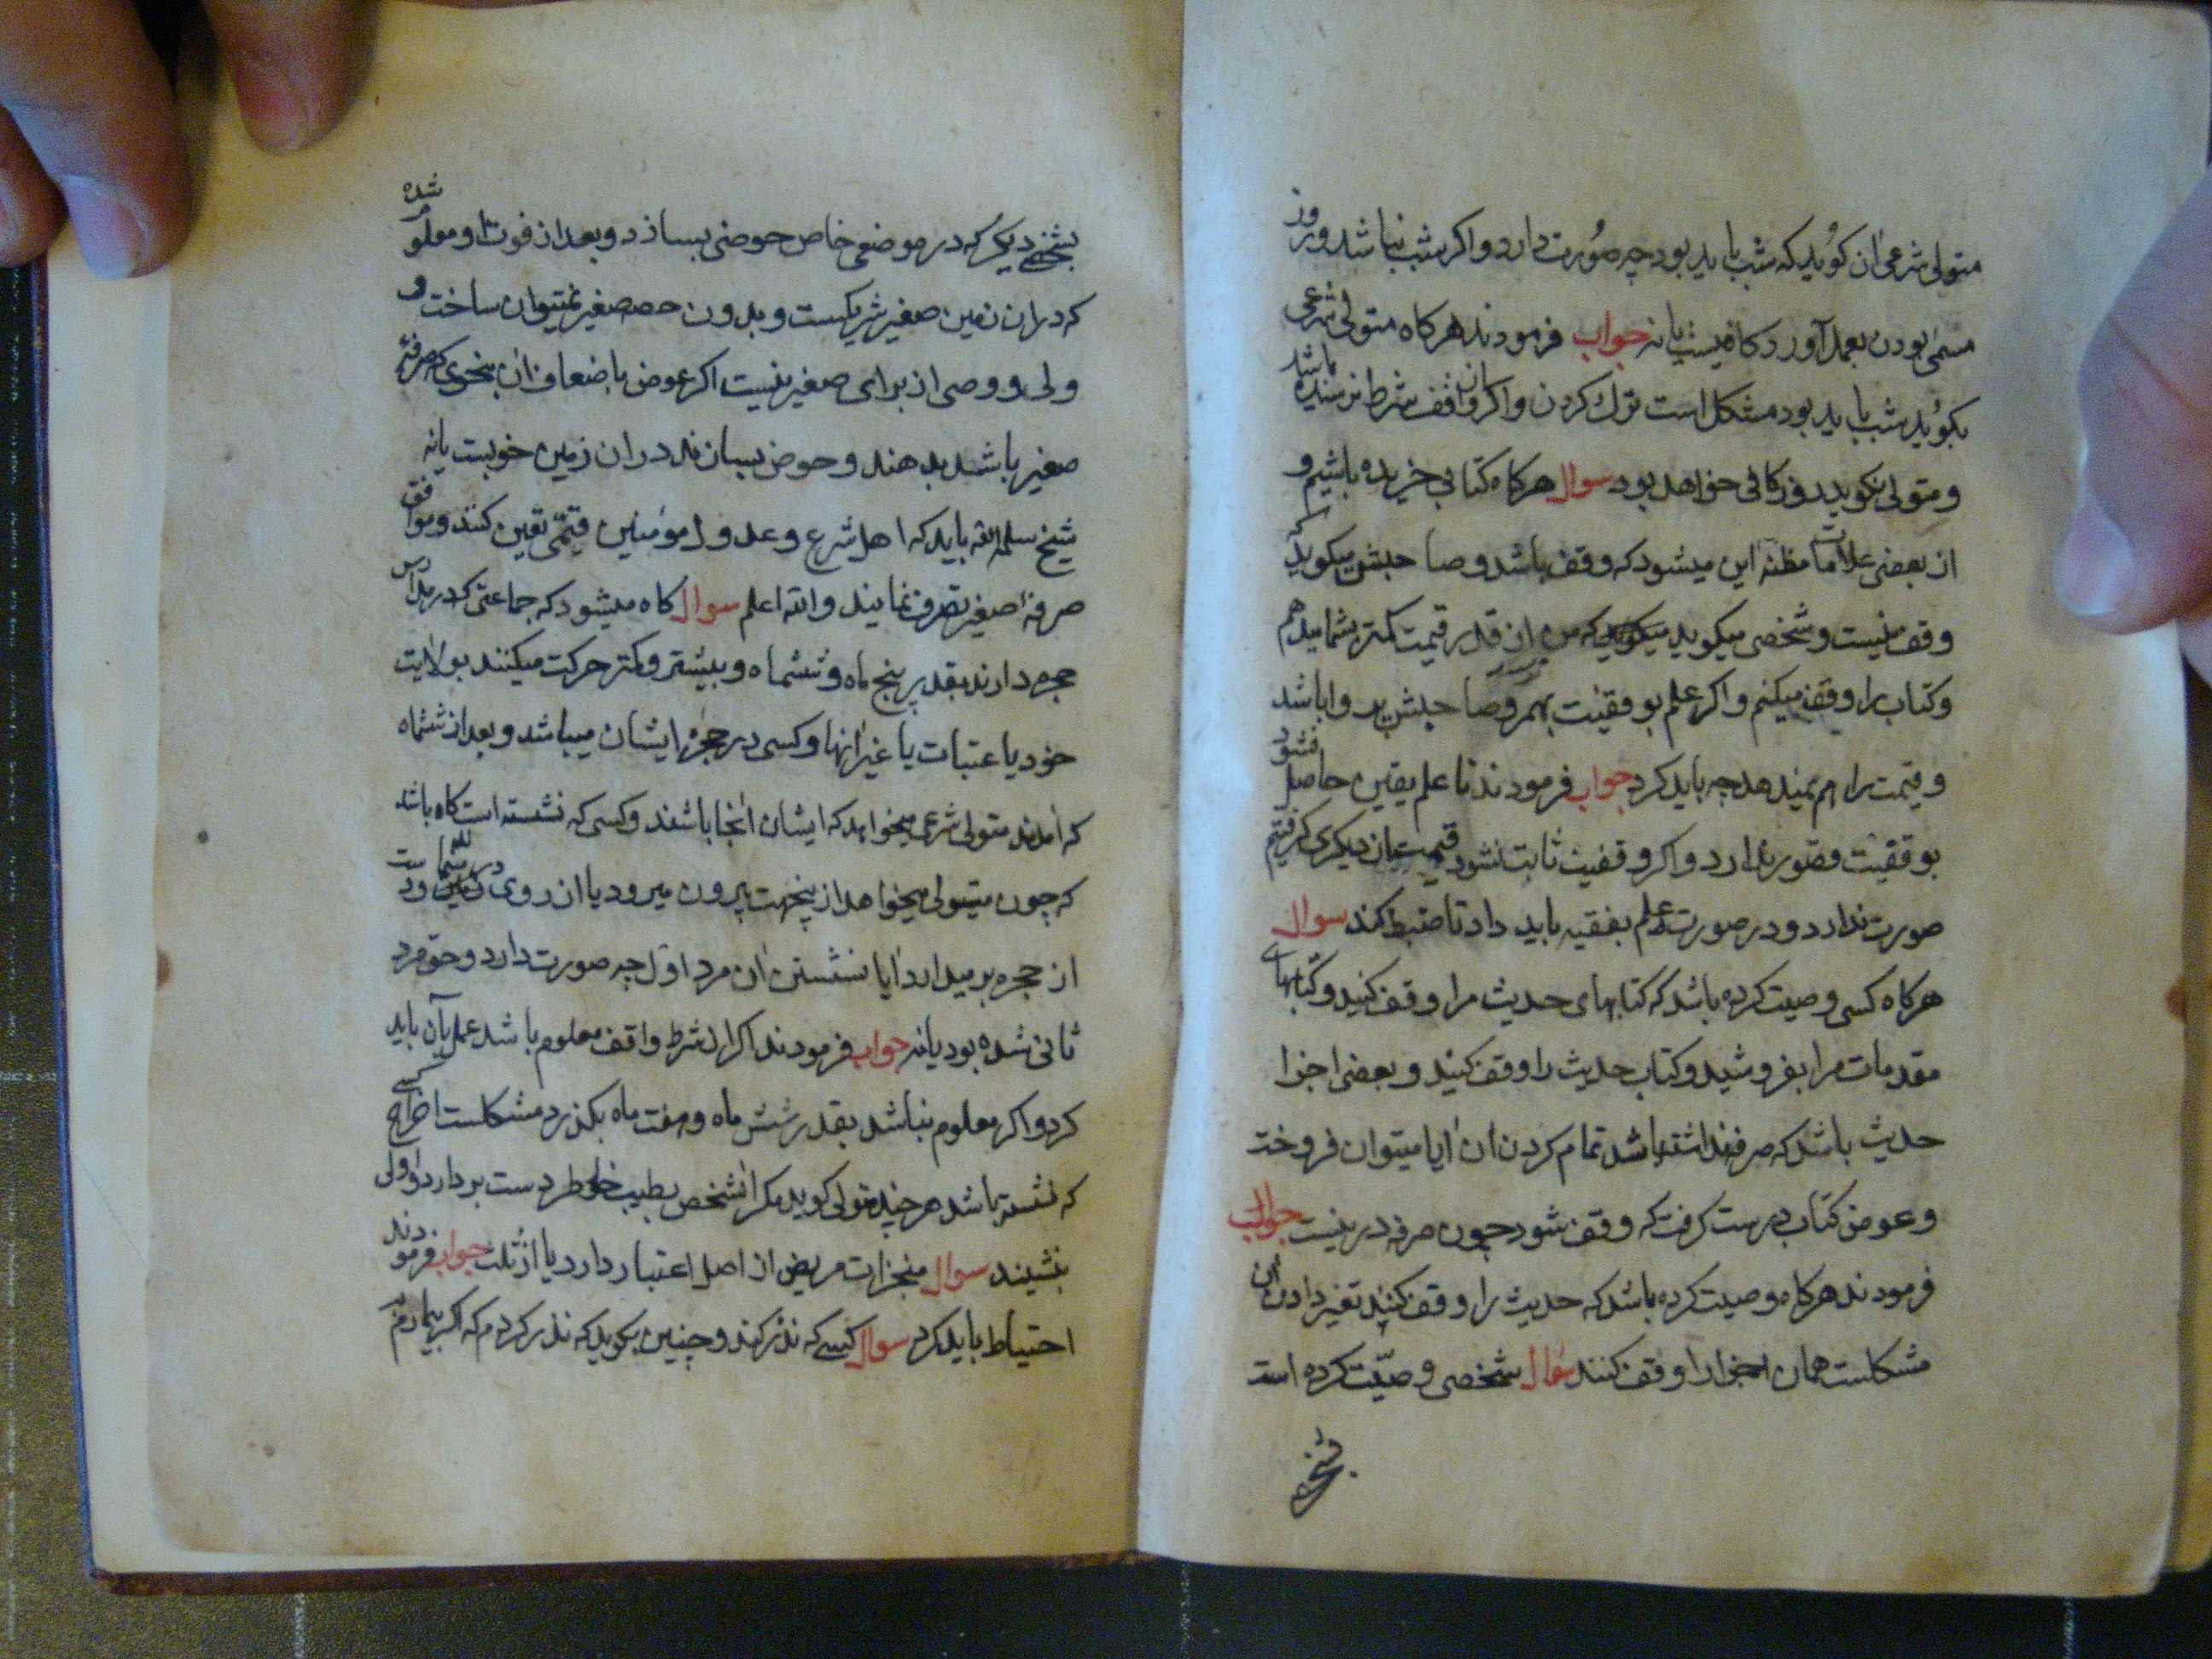 متولی شرعی ان کوید که شب باید بود چه صورت دارد واکر شب نباشد وروز
مسمی بودن بعمل آورد کافیست یا نه جواب فرمودند هرکاه متولی شرعی
بکوید شب باید بود مشکل است ترک کردن واکر واقف شرط نرسیده باشد
ومتولی نکوید روز کافی خواهد بود سوال هرکاه کتابی خریده باشیم و
از بعضی علامات مظنه این میشود که وقف باشد وصاحبش میکوید که
وقف نیست وشخصی میکوید میکوید که من ان قدر قیمت کمتر بشما میدهم
وکتاب را وقف میکنم واکر علم بوقفیت بهمرسد وصاحبش پیدا باشد
وقیمت را هم نمیدهد چه باید کرد جواب فرمودند تا علم یقین حاصل نشود
بوقفیت قصور ندارد واکر وقفیت ثابت نشود قیمت ان دیکری کرفتیم
صورت ندارد ودر صورت علم بفقیه باید داد تا ضبط کند سوال
هرکاه کسی وصیت کرده باشد که کتابهای حدیث مرا وقف کنید وکتابهای
مقدمات مرا بفروشید وکتاب حدیث را وقف کنید وبعضی اجزا
حدیث باشد که صرفه نداشته باشد تمام کردن ان ایا میتوان فروخت
وعوض کتاب درست کرفت که وقف شود چون صرفه در نیست جواب
فرمودند هرکاه وصیت کرده باشد که حدیث را وقف کنید تغیر دادن ان
مشکلست همان اجزا را وقف کنند سوال شخصی وصیّت کرده است
بشخصی
بشخصی دیکر که در موضعی خاص حوضی بسازد وبعد از فوت او معلوم شده
که در ان زمین صغیر شریکست وبدون حصه صغیر نمیتوان ساخت و
ولی و وصی از برای صغیر نیست اکر عوض باضعاف ان بنحوی که صرفهٔ
صغیر باشد بدهند وحوض بسازند در ان زمین خوبست یا نه
شیخ سلمه الله باید که اهل شرع وعدول مومنین قیمتی تعین کنند وموافق
صرفهٔ صغیر تصرف نمایند والله اعلم سوال کاه میشود که جماعتی که در مدارس
حجره دارند بقدر پنج ماه وششماه وبیشتر وکمتر حرکت میکنند بولایت
خود یا عتبات یا غیر انها وکسی در حجرهٔ ایشان میباشد وبعد از ششماه
که امدند متولی شرعی میخواهد که ایشان انجا باشند وکسی که نشسته است کاه باشد
که چون متولی میخواهد ازینجهت بیرون میرود یا از روی
از حجره برمیدارد ایا نشستن ان مرد اول چه صورت دارد وحق مرد
ثانی شده بود یا نه جواب فرمودند اکر از شرط واقف معلوم باشد عمل بآن باید
کرد واکر معلوم نباشد بقدر شش ماه وهفت ماه بکذرد مشکلست اخراج کسی
که نشسته باشد هر چند متولی کوید مکر انشخص بطیب خاطر دست بردارد واولی
بنشیند سوال منجزات مریض از اصل اعتبار دارد یا از ثلث جواب فرمودند
احتیاط باید کرد سوال کسی که نذر کند وچنین بکوید که نذر کردم که اکر بیمارم